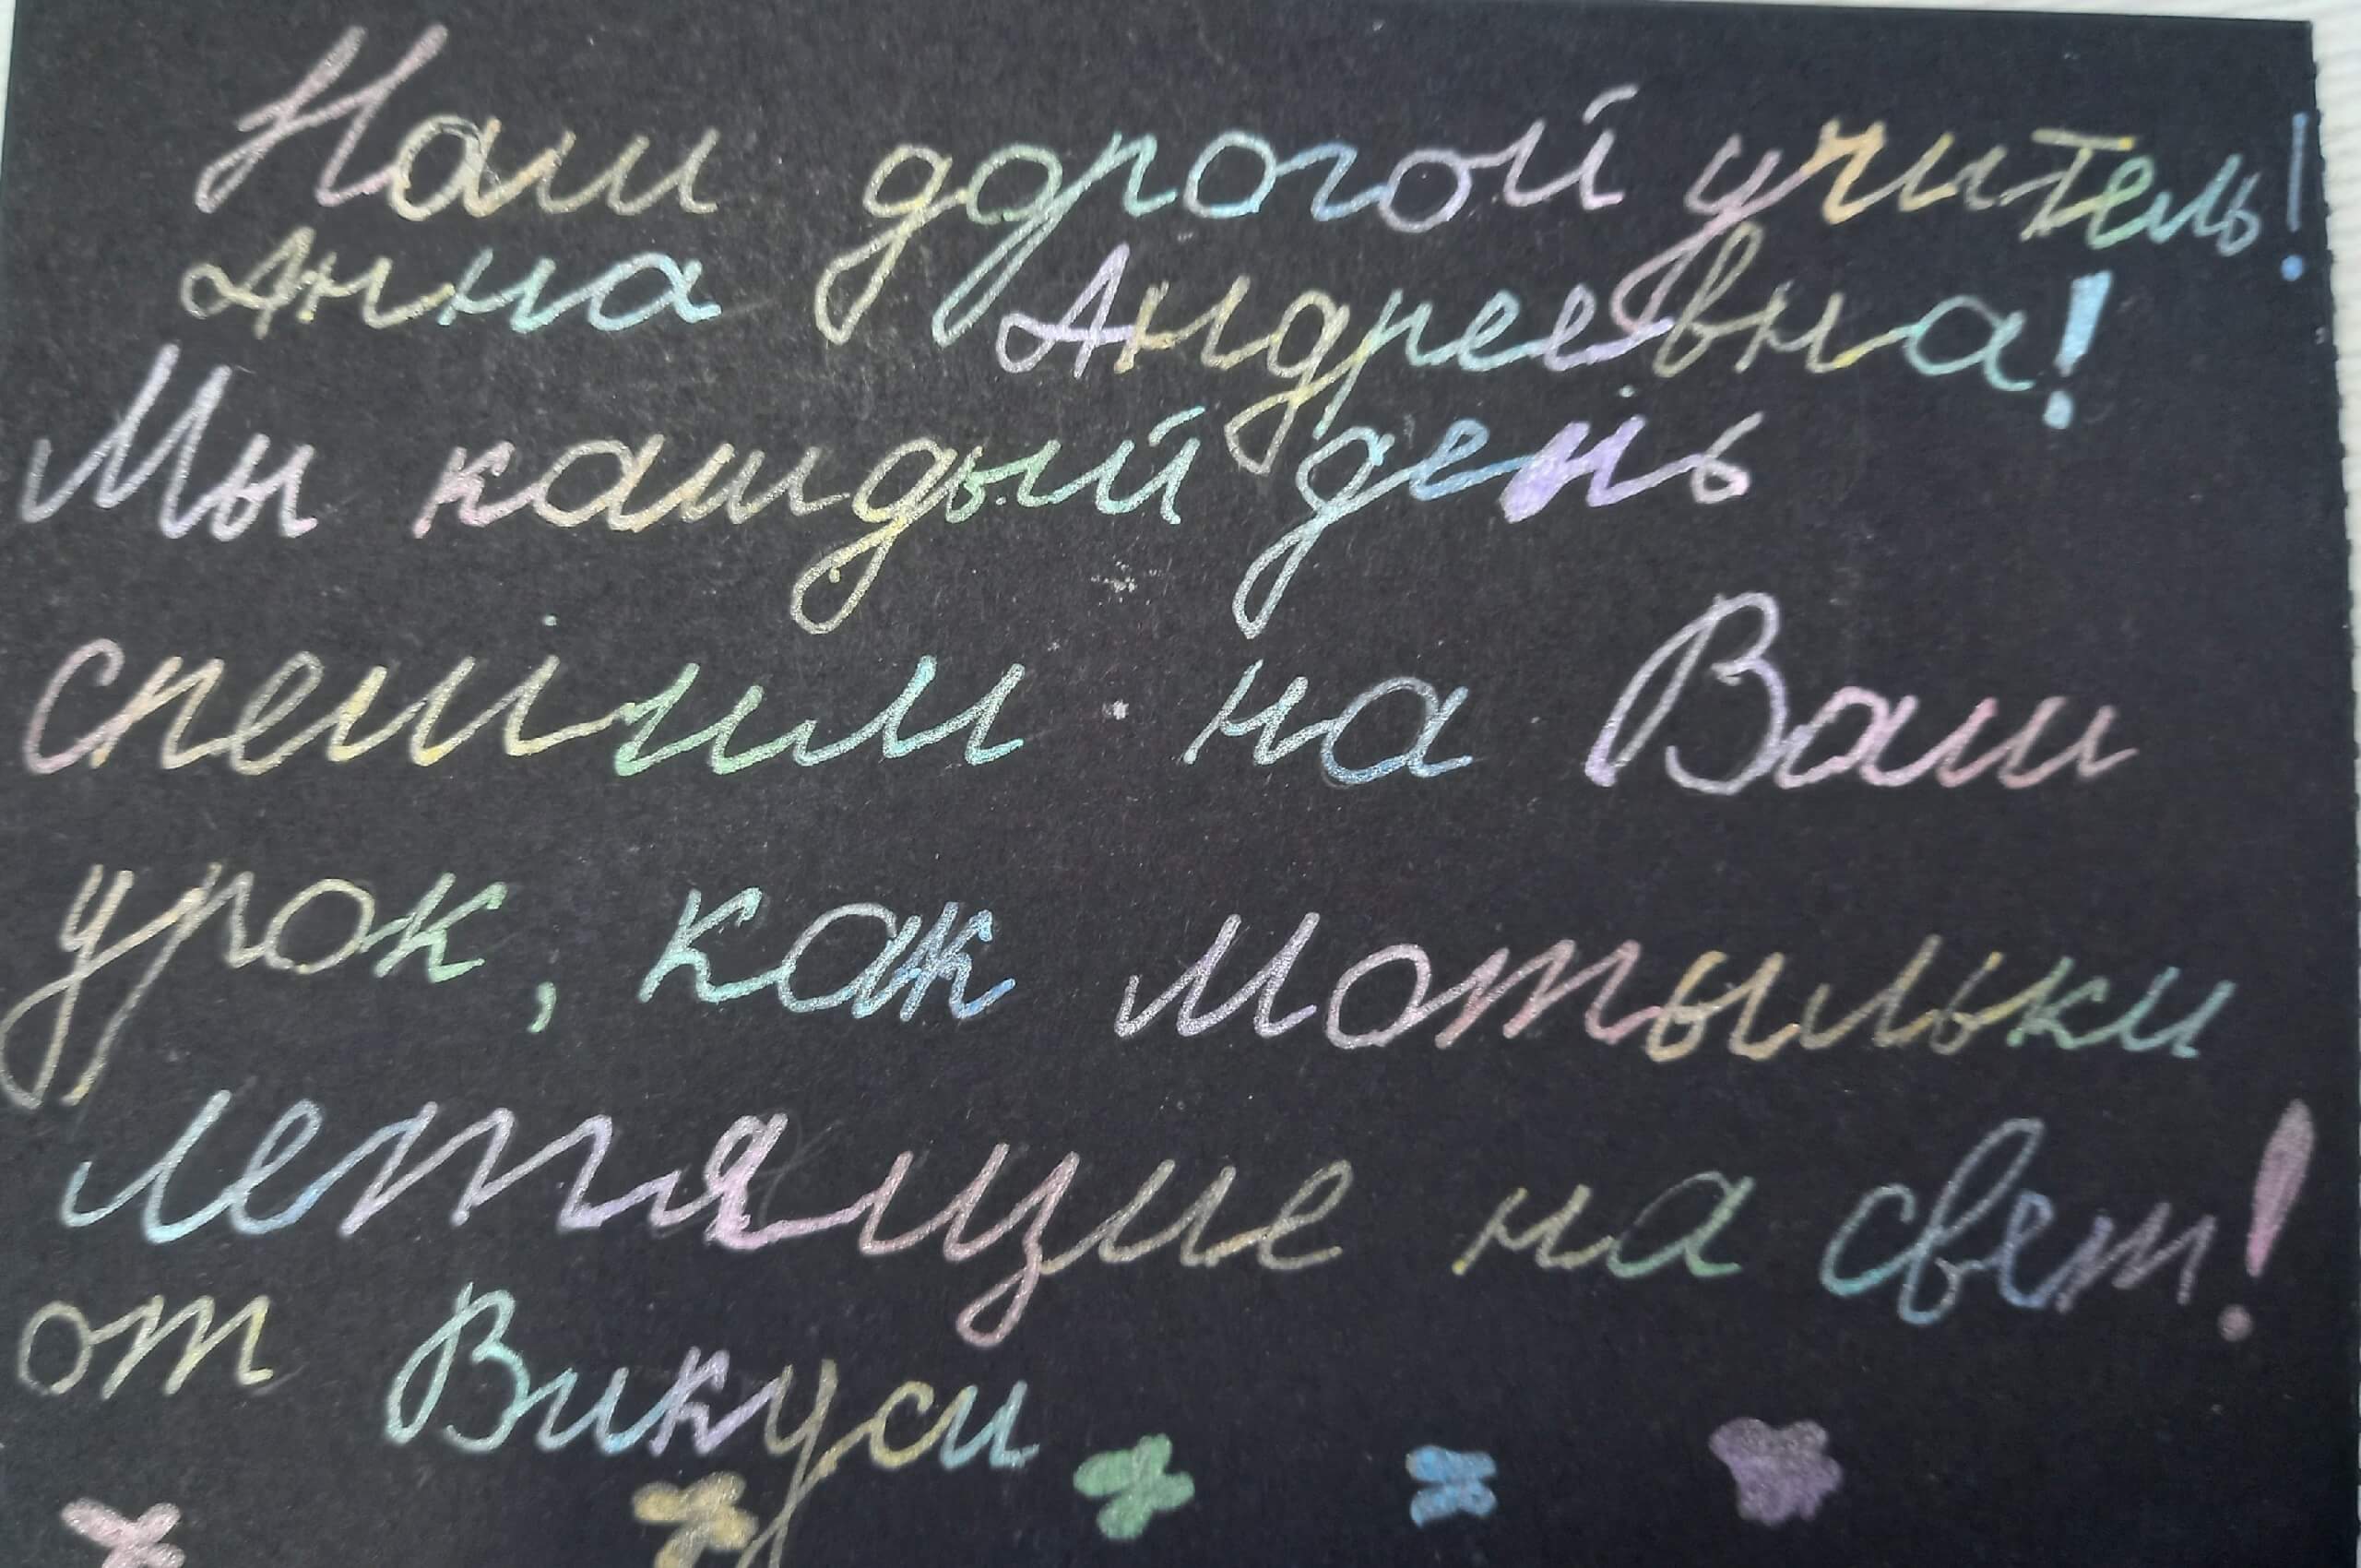 Наш дорогой учитель!
Анна Андреевна!
Мы каждый день
спешим на Ваш
урок, как мотыльки
летящие на свет!
от Викуси